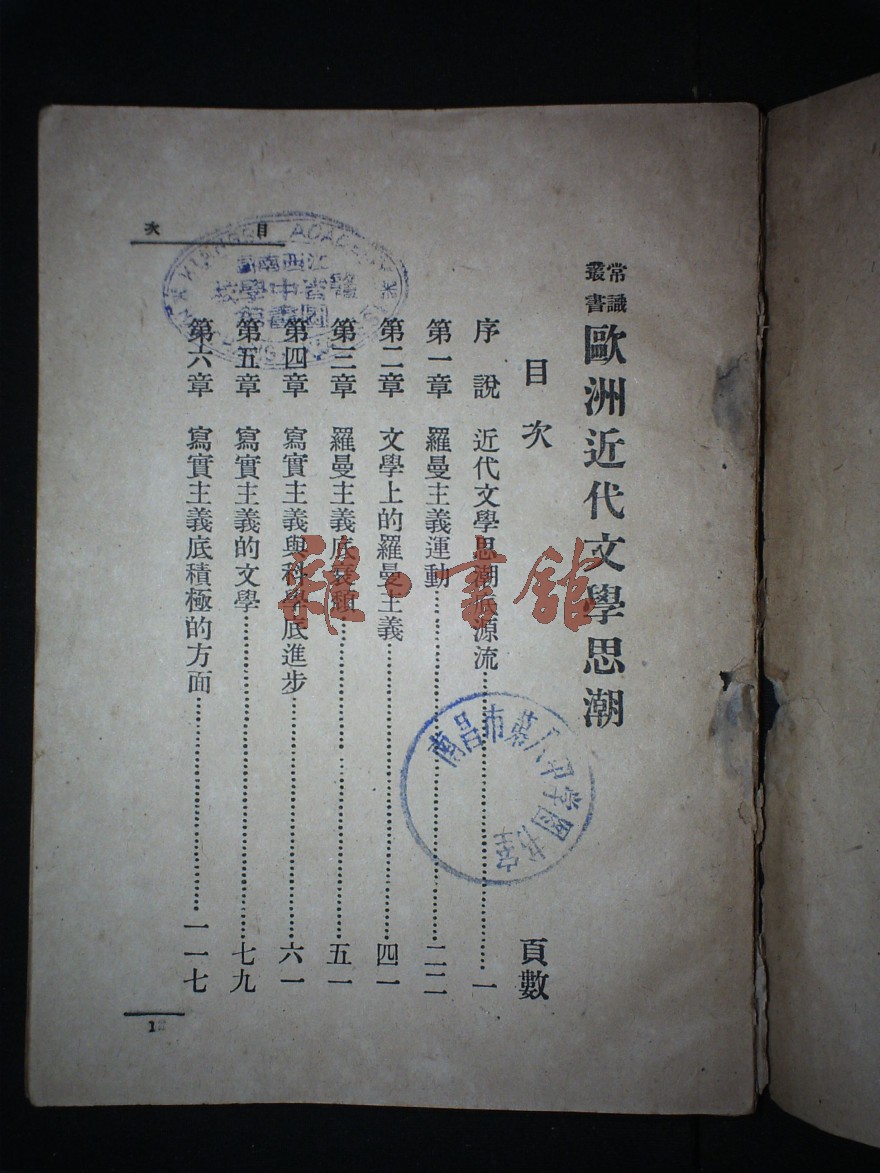 常識
叢書
歐洲近代文學思潮
目次
頁數
序說 近代文學思潮底源流……一
第一章 羅曼主義運動……二二
第二章 文學上的羅曼主義……四一
第三章 羅曼主義底衰頹……五一
第四章 寫實主義與科學底進步……六一
第五章 寫實主義的文學……七九
第六章 寫實主義底積極的方面……一一七
目次
1
南昌市第八中学图书室
ACADEMY
雅·书馆